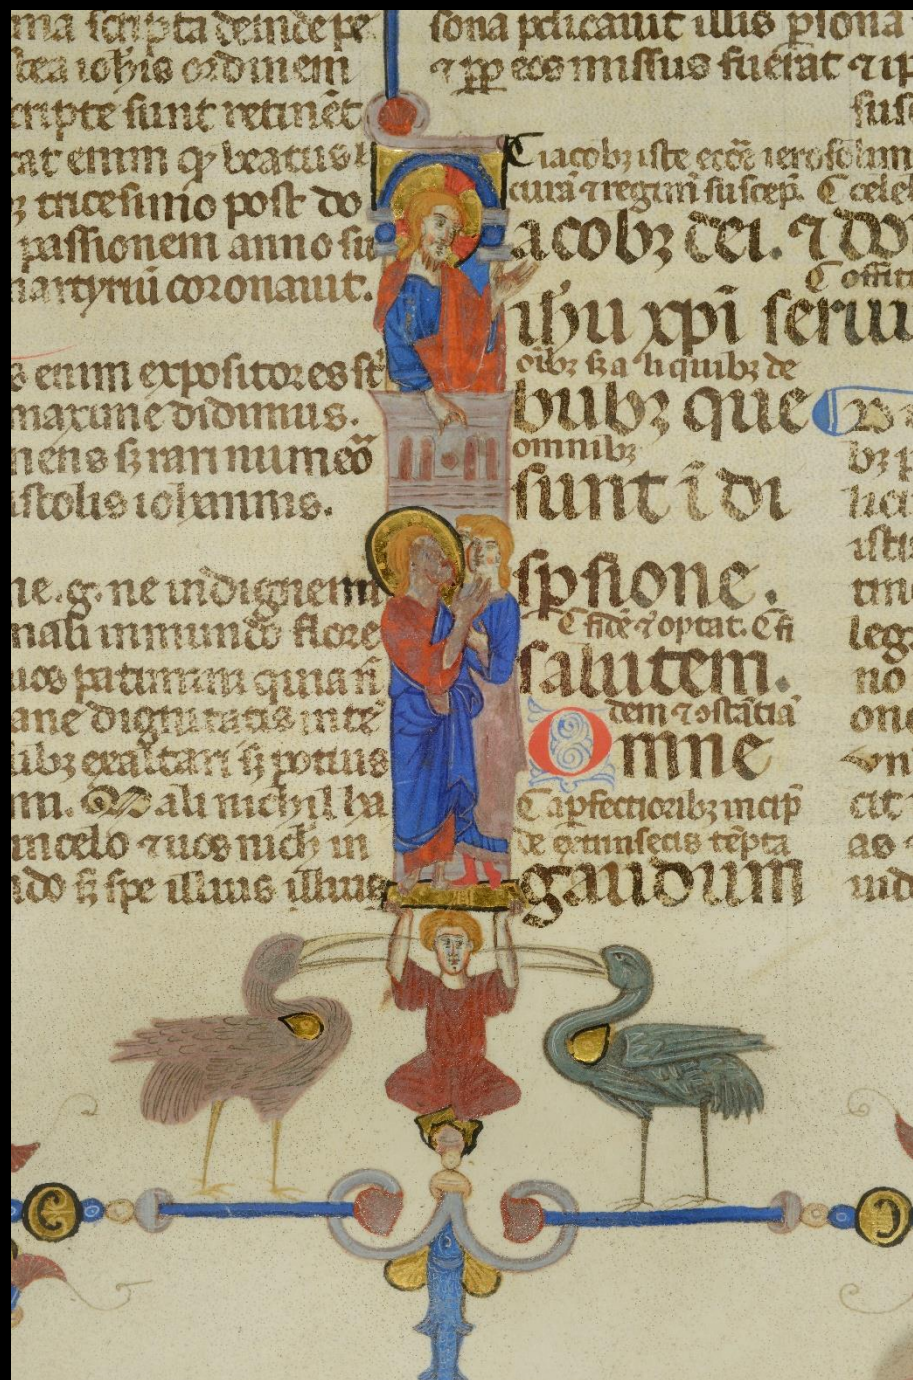 ma scripta deinde pe
stea ioh̄is ordinem
cripte sunt retinēt
tat enim qͥ beatus
ꝫ tricesimo post do
passionem anno su
martyriū coronauit.
s enim expositores st̄
maxime didimus.
nens sꝫ rari numeō
istolis iohannis.
ne .g. ne indignemi
mali inmundo flore
uos patimini quia n̄
ane dignitatis inte
ibꝫ exaltari sꝫ potius
m. Mali nichil ha
in celo ⁊ uos nich̄ in
do sꝫ spe illius illius
sona p̄dicauit illis p̄sona
⁊ ꝓꝑ eos missus fuerat ⁊ ip
susc
iacobꝫ iste ecc̄e ierosolim
curā ⁊ regim̄ suscep̄. celeb
acobꝫ dei. ⁊ do
ih̄u xp̄i seruu
oībꝫ sꝫ aliquibꝫ de
bubꝫ que
omnibꝫ
sunt ī di
spsione.
fidē ⁊ optat.
salutem.
dem ⁊ ꝯstātia
Omne
a ꝑfectioribꝫ incip̄
de extrinsecis tēpta
gaudium
bꝫ p
leg
no
one
as ⁊
uid